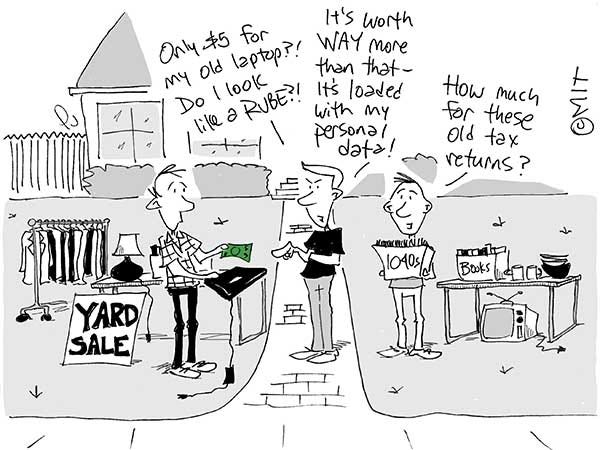 Only $5 for
my old laptop?!
Do I look
like a RUBE?!
It's worth
WAY more
than that-
It's loaded
with my
personal
data!
How much
for these
old tax
returns?
©MIT
YARD
SALE
1040s
Books